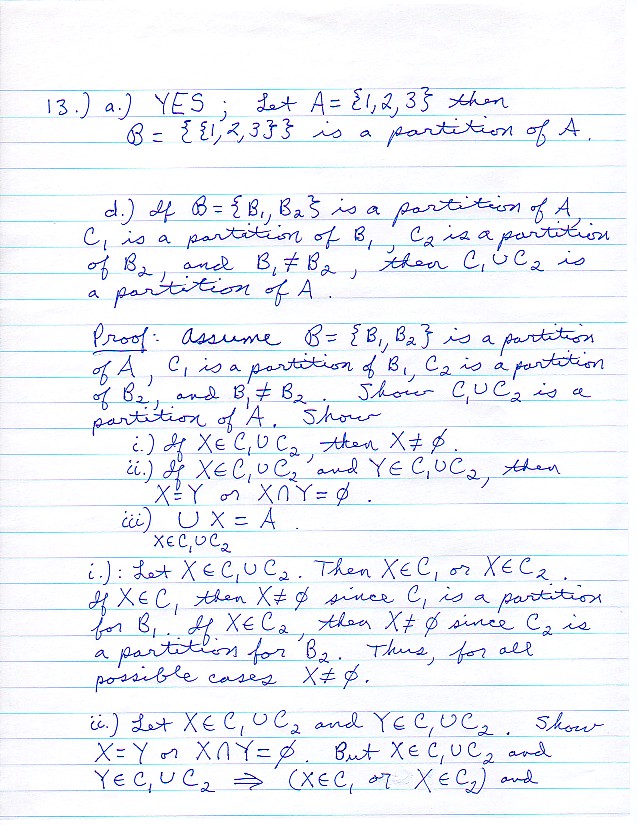 13.) a.) YES ; Let A = {1,2,3} then
B = {{1,2,3}} is a partition of A.
d.) If B = {B₁, B₂} is a partition of A,
C₁ is a partition of B₁, C₂ is a partition
of B₂, and B₁ ≠ B₂, then C₁∪C₂ is
a partition of A.
Proof: Assume B = {B₁, B₂} is a partition
of A, C₁ is a partition of B₁, C₂ is a partition
of B₂, and B₁ ≠ B₂. Show C₁∪C₂ is a
partition of A. Show
i.) If X∈C₁∪C₂, then X≠∅.
ii.) If X∈C₁∪C₂ and Y∈C₁∪C₂, then
X=Y or X∩Y=∅.
iii) ∪ X = A.
X∈C₁∪C₂
i.): Let X∈C₁∪C₂. Then X∈C₁ or X∈C₂.
If X∈C₁ then X≠∅ since C₁ is a partition
for B₁. If X∈C₂, then X≠∅ since C₂ is
a partition for B₂. Thus, for all
possible cases X≠∅.
ii.) Let X∈C₁∪C₂ and Y∈C₁∪C₂. Show
X=Y or X∩Y=∅. But X∈C₁∪C₂ and
Y∈C₁∪C₂ ⇒ (X∈C₁ or X∈C₂) and